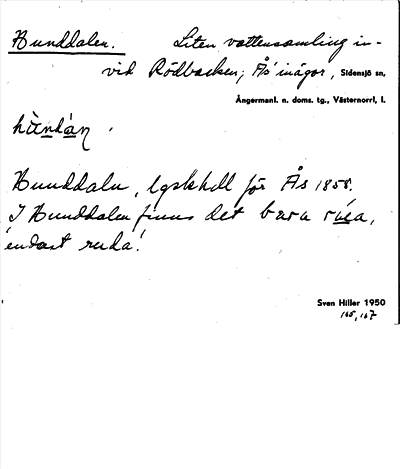 Hunddalen. Liten vattensamling in-
vid Rödbacken, Ås' inägor, Sidensjö sn,
Ångermanl. n. doms. tg., Västernorrl, l.
Hunddaln, lgsksk för Ås 1858.
I Hunddalen finns det bara
endast ruda!
Sven Hiller 1950
165, 167